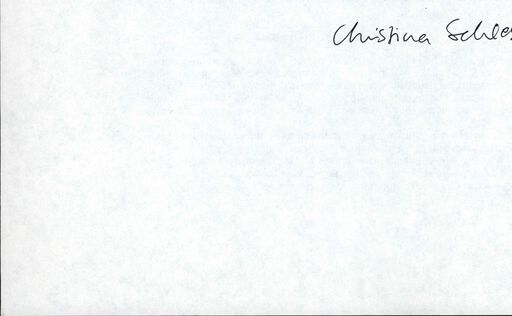 Christina Schles